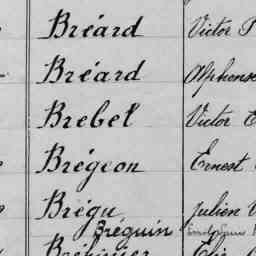 Bréard Victor
Bréard Alphonse
Brebel Victor
Brégeon Ernest
Brégu Julien
Bréguin
Elie